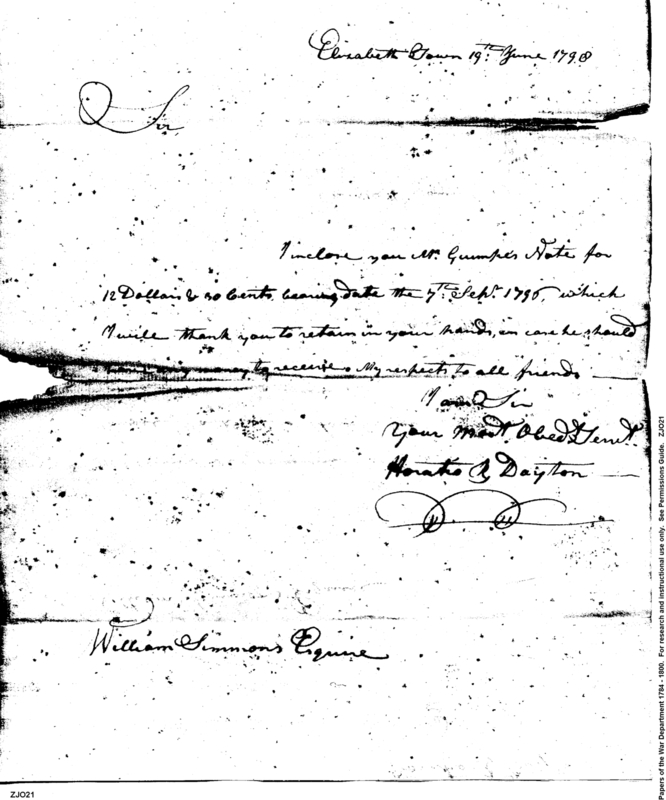 Elizabeth Town 19th. June 1798
Sir
I inclose you Mr. Guimpe's Note for
12 Dollars & 30 Cents bearing date the 7th. Sepr. 1796, which
I will thank you to retain in your hands, in case he should
have any money to receive. My respects to all friends
I am Sir
Your most Obedt. Servt.
Horatio R Dayton
William Simmons Esquire
ZJO21
Papers of the War Department 1784 - 1800. For research and instructional use only. See Permissions Guide. ZJO21